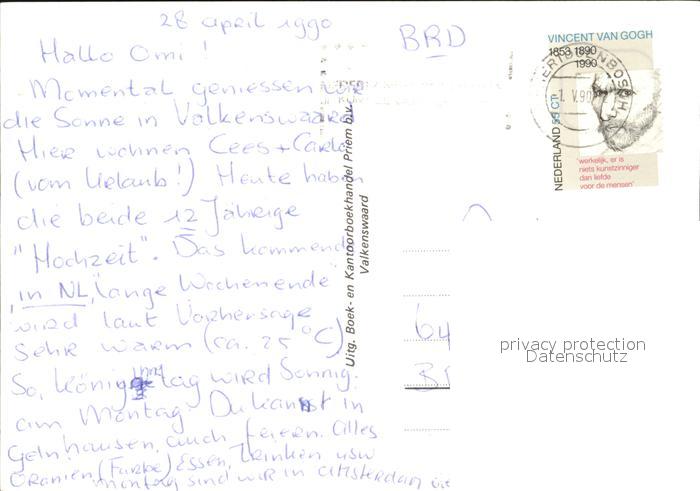 28 april 1990
Hallo Omi !
Momental geniessen wir
die Sonne in Valkenswaard
Hier wohnen Cees + Carla
(vom Urlaub!) Heute haben
die beide 12 Jährige
"Hochzeit". Das kommende
"in NL" lange Wochenende
wird laut Vorhersage
sehr warm (ca. 25 °C)
So, königinnetag wird Sonnig.
am Montag. Du kannst in
Gelnhausen auch feiern. Alles
Oranien (Farbe) Essen, Trinken usw
Montag sind wir in Amsterdam
Uitg. Boek- en Kantoorboekhandel Priem b.v.
Valkenswaard
BRD
64
VINCENT VAN GOGH
1853 1890
1990
NEDERLAND 55 CT
'werkelijk, er is
niets kunstzinniger
dan liefde
voor de mensen'
1. V. 90
privacy protection
Datenschutz